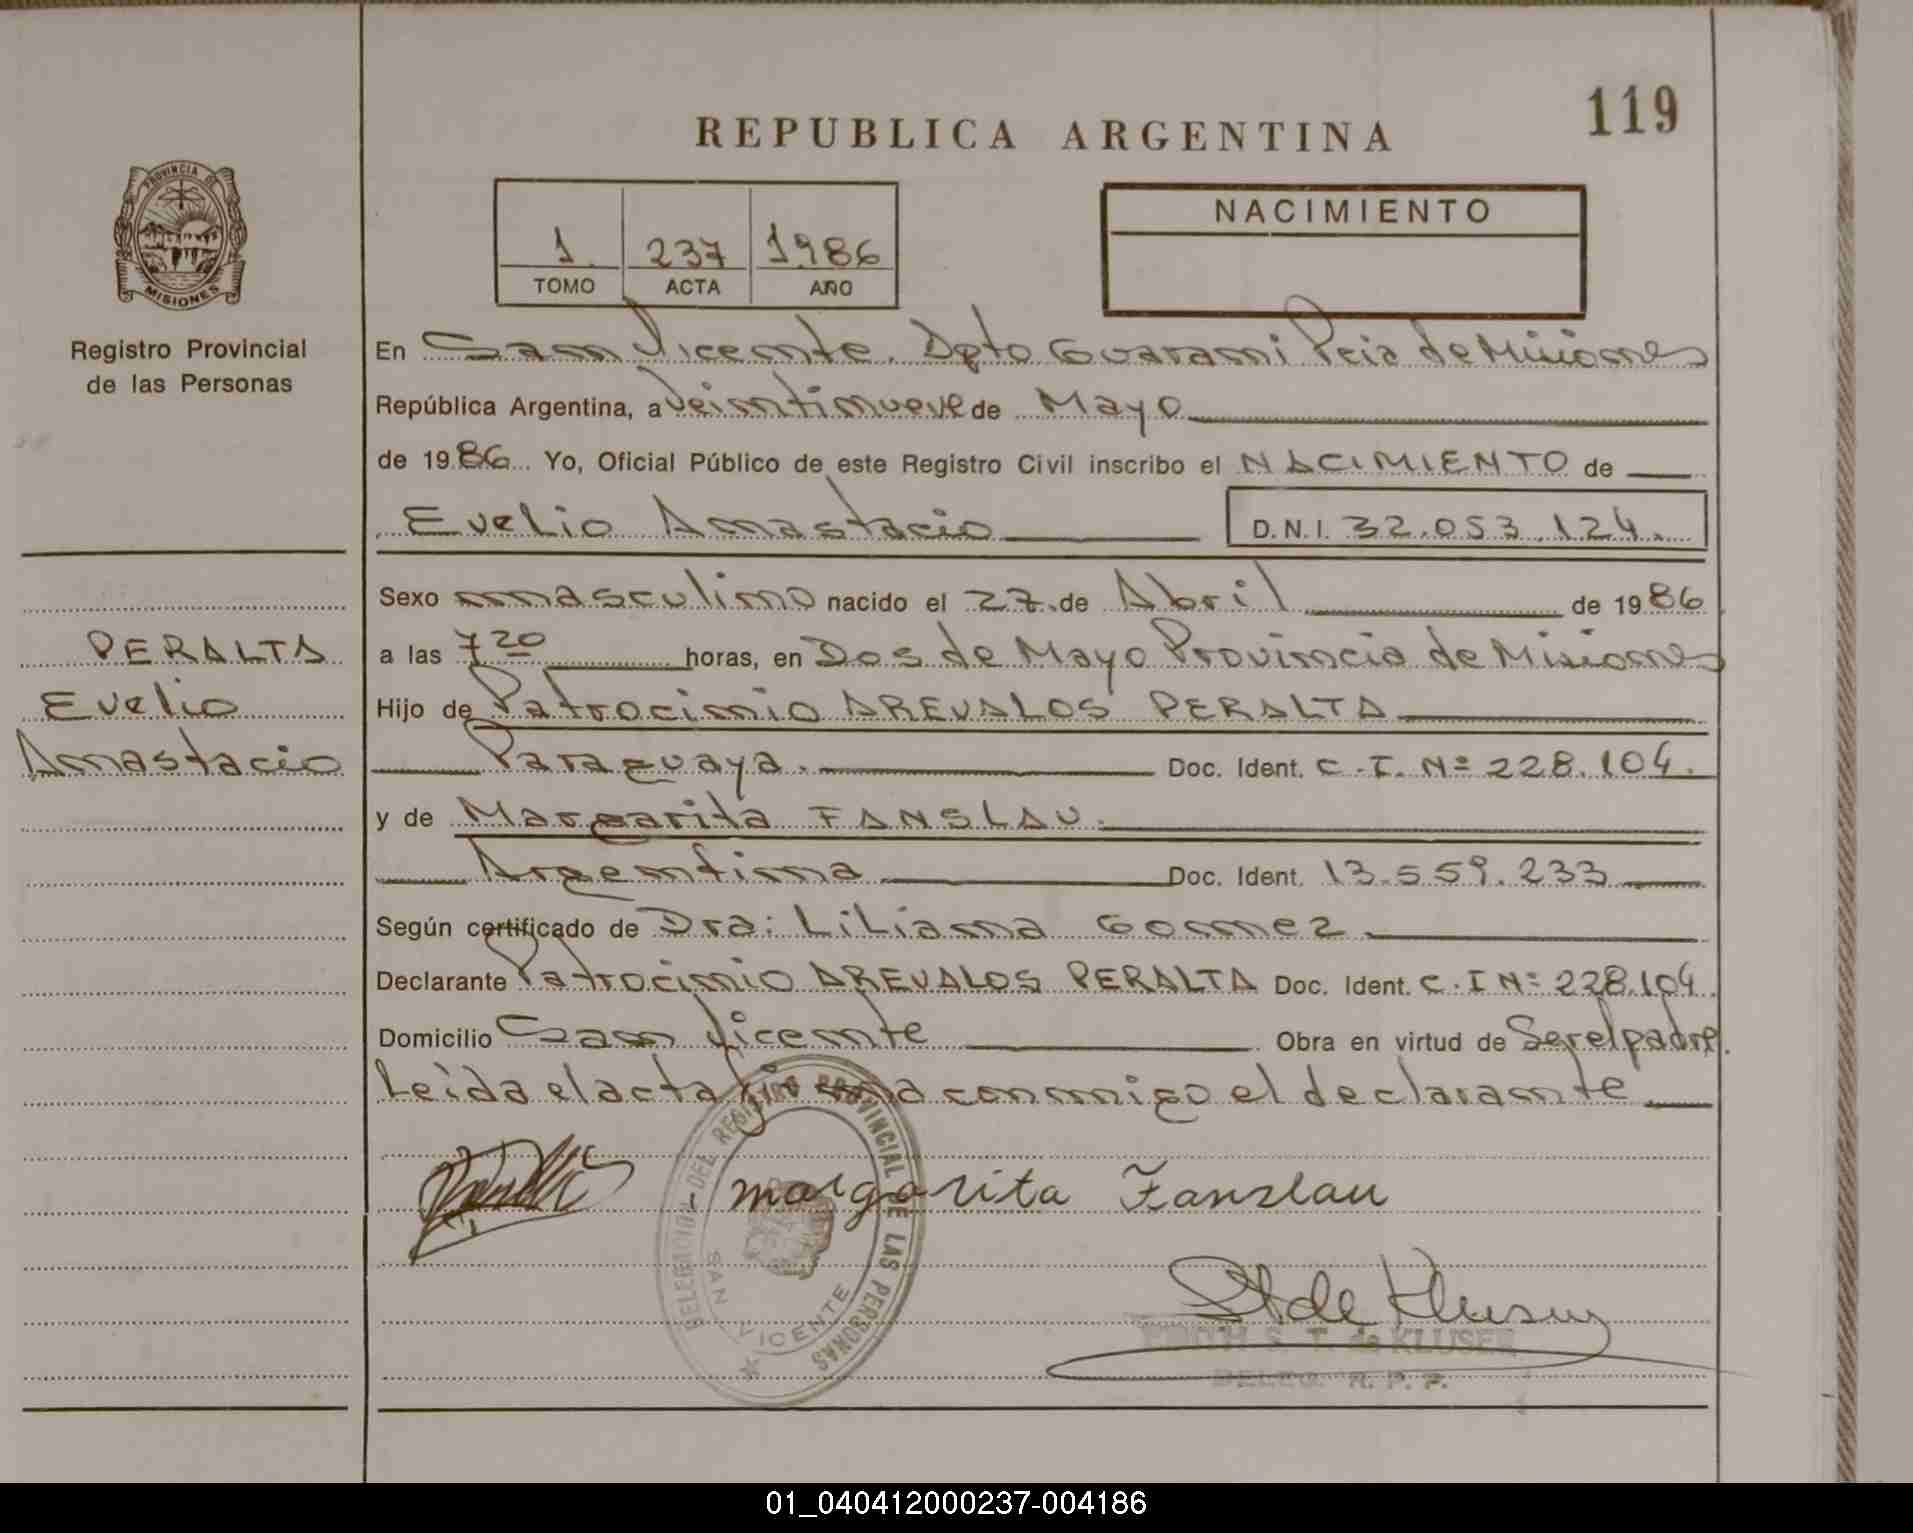 119
REPUBLICA ARGENTINA
PROVINCIA DE
MISIONES
Registro Provincial
de las Personas
1 237 1986
TOMO ACTA AÑO
NACIMIENTO
En San Vicente. Dpto Guarani Pcia de Misiones
República Argentina, a Veintinueve de Mayo
de 1986 Yo, Oficial Público de este Registro Civil inscribo el NACIMIENTO de
Evelio Anastacio D.N.I. 32.053.124.
Sexo masculino nacido el 27. de Abril de 1986
a las 7 20 horas, en Dos de Mayo Provincia de Misiones
Hijo de Patrocinio AREVALOS PERALTA
Paraguaya. Doc. Ident. C.I. Nº 228.104.
y de Margarita FANSLAU.
Argentina Doc. Ident. 13.559.233
Según certificado de Dra: Liliana Gomez
Declarante Patrocinio AREVALOS PERALTA Doc. Ident. C.I Nº 228.104.
Domicilio San Vicente Obra en virtud de Ser el padre.
Leida el acta firma conmigo el declarante
PERALTA
Evelio
Anastacio
margarita Fanslau
DELEGACION DEL REGISTRO PROVINCIAL DE LAS PERSONAS
SAN VICENTE
St de Kluser
EDITH S. T. de KLUSER
DELEG. R. P. P.
01_040412000237-004186